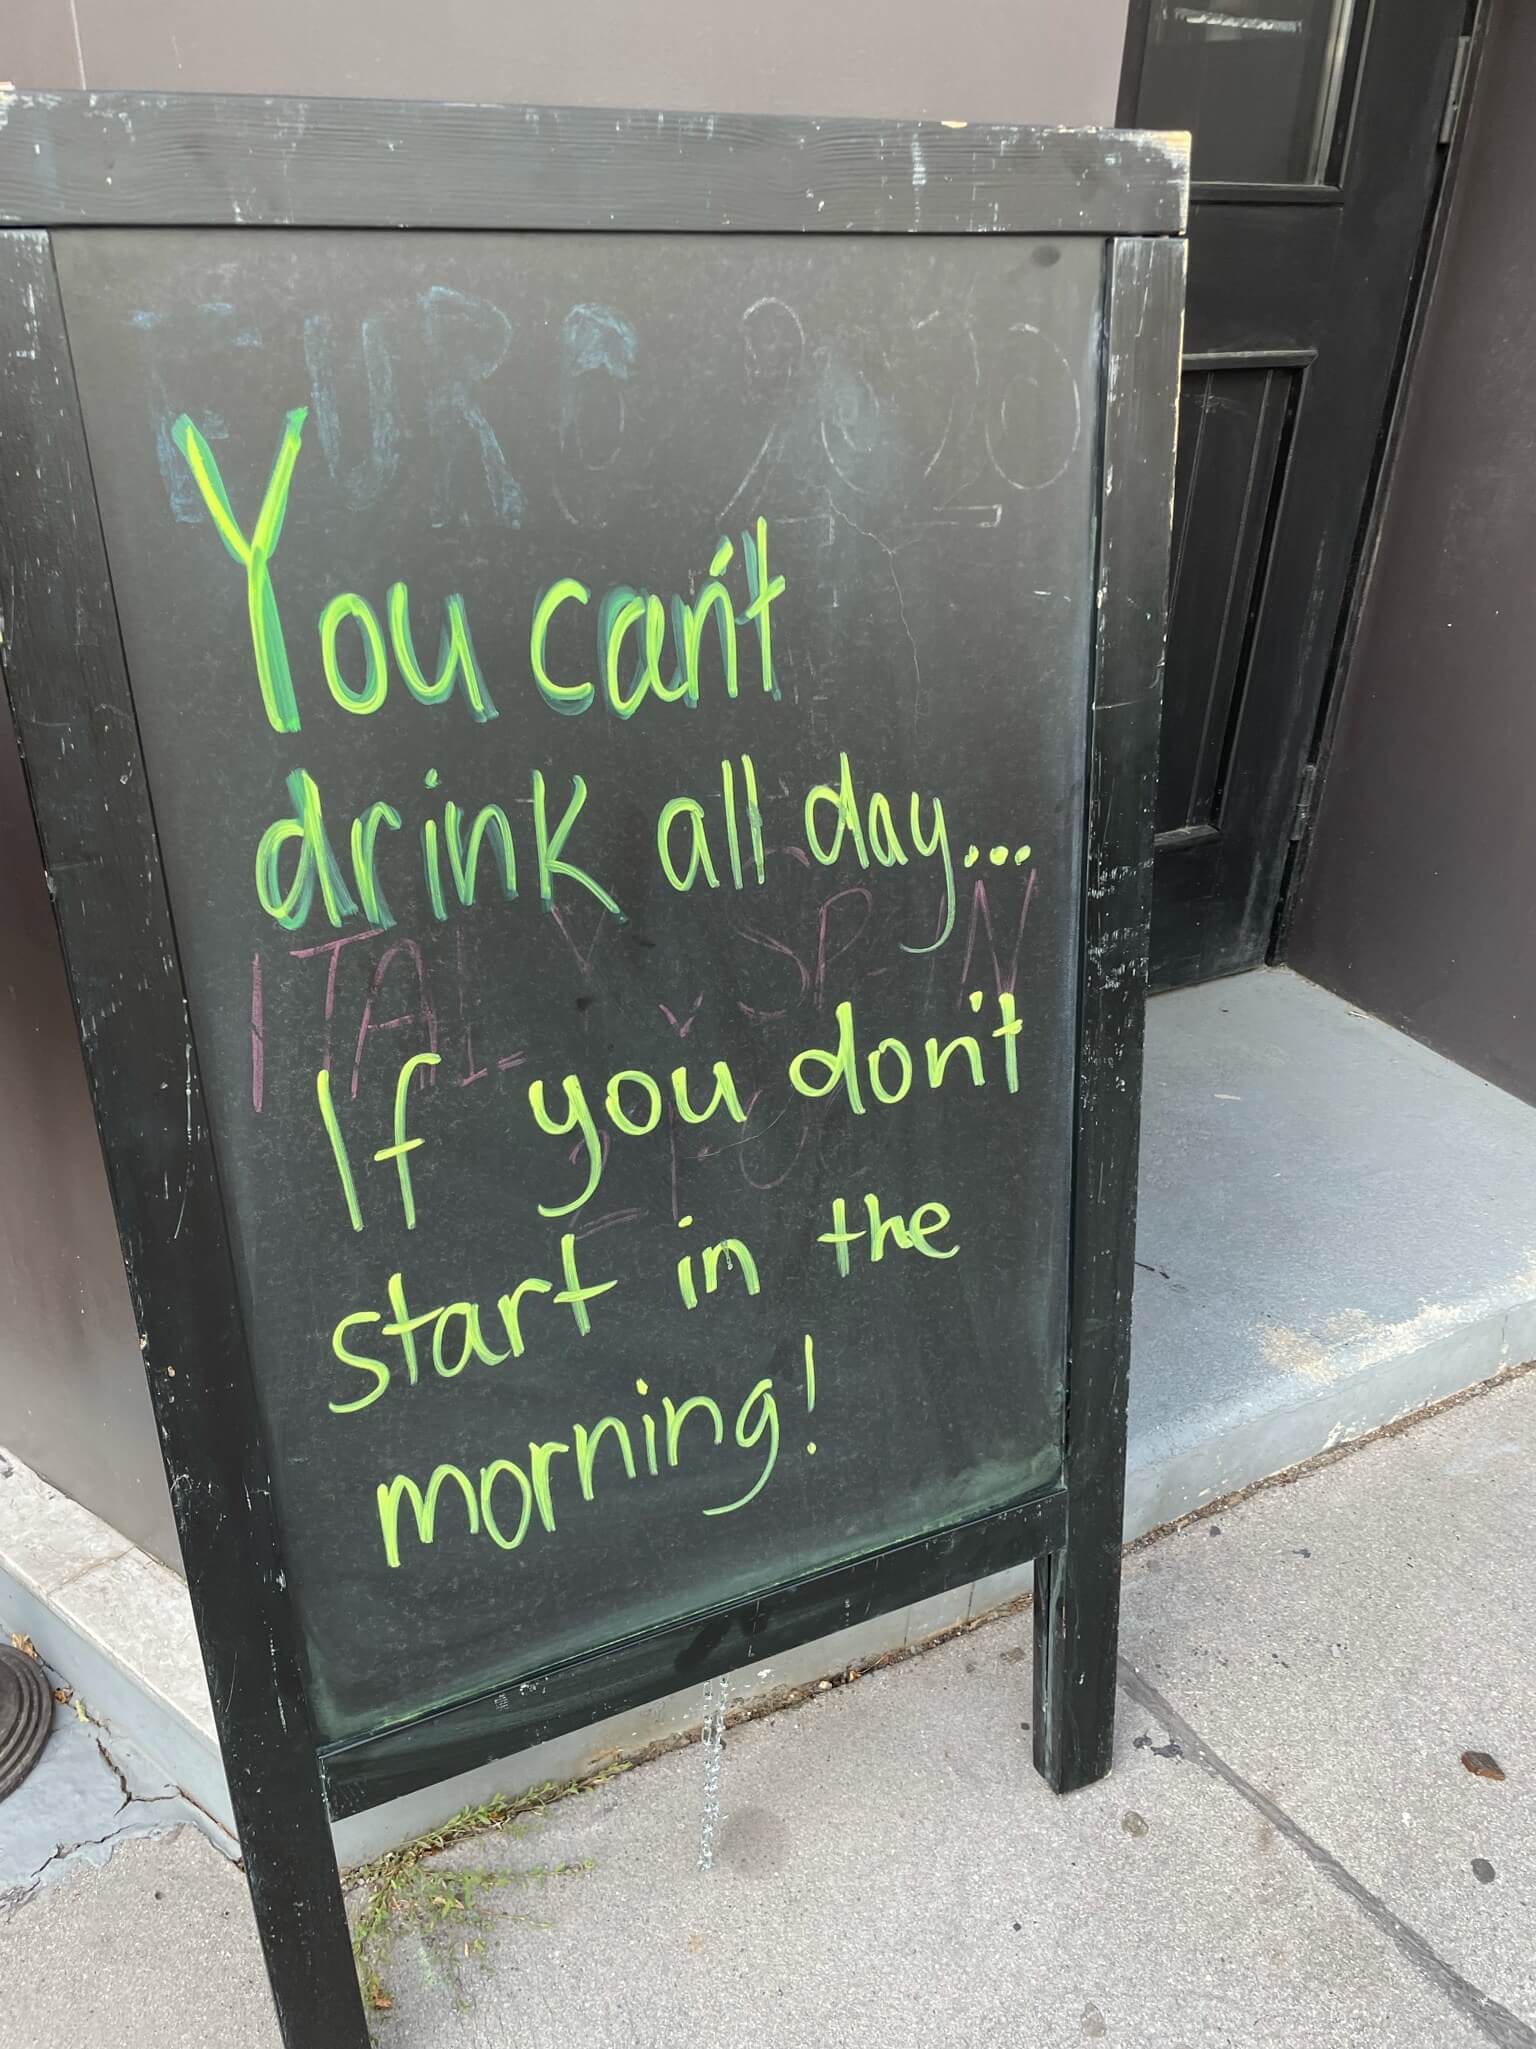 EURO 2020
You can't
drink all day...
ITALY v SPAIN
If you don't
start in the
morning!